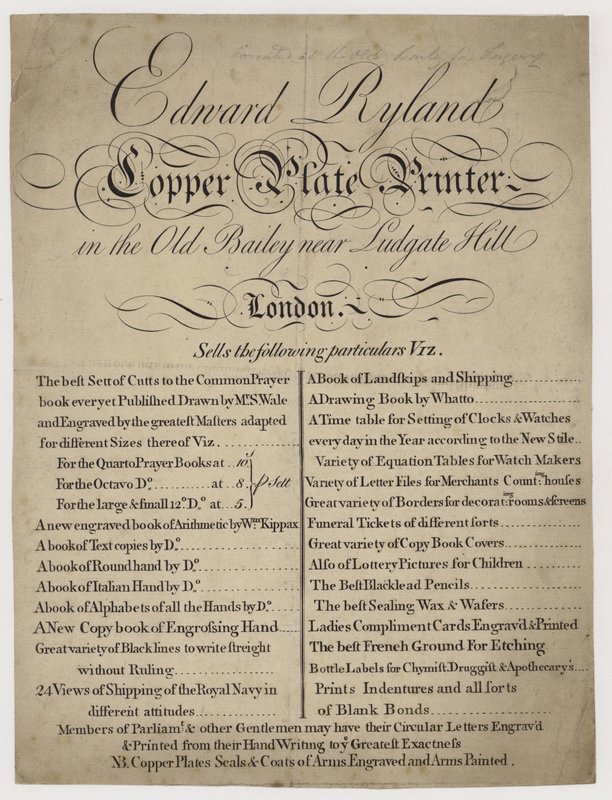 Executed at the Old Baily for Forgery
Edward Ryland
Copper Plate Printer
in the Old Bailey near Ludgate Hill
London.
Sells the following particulars Viz.
The beſt Sett of Cutts to the Common Prayer
book ever yet Publiſhed Drawn by Mr. S. Wale
and Engraved by the greateſt Maſters adapted
for different Sizes thereof Viz.
For the Quarto Prayer Books at .. 10s
For the Octavo Do. at .. 8. ⅌ Sett
For the large & ſmall 12o. Do. at .. 5.
A new engraved book of Arithmetic by Wm. Kippax
A book of Text copies by Do.
A book of Round hand by Do.
A book of Italian Hand by Do.
A book of Alphabets of all the Hands by Do.
A New Copy book of Engroſsing Hand
Great variety of Black lines to write ſtreight
without Ruling
24 Views of Shipping of the Royal Navy in
different attitudes
A Book of Landſkips and Shipping
A Drawing Book by Whatto
A Time table for Setting of Clocks & Watches
every day in the Year according to the New Stile
Variety of Equation Tables for Watch Makers
Variety of Letter Files for Merchants Count:ing houſes
Great variety of Borders for decorat:ing rooms & ſcreens
Funeral Tickets of different ſorts
Great variety of Copy Book Covers
Alſo of Lottery Pictures for Children
The Beſt Blacklead Pencils
The beſt Sealing Wax & Wafers
Ladies Compliment Cards Engrav'd & Printed
The beſt French Ground For Etching
Bottle Labels for Chymiſt, Druggiſt & Apothecary's
Prints Indentures and all ſorts
of Blank Bonds
Members of Parliamt. & other Gentlemen may have their Circular Letters Engrav'd
& Printed from their Hand Writing to ye Greateſt Exactneſs
NB. Copper Plates Seals & Coats of Arms Engraved and Arms Painted.